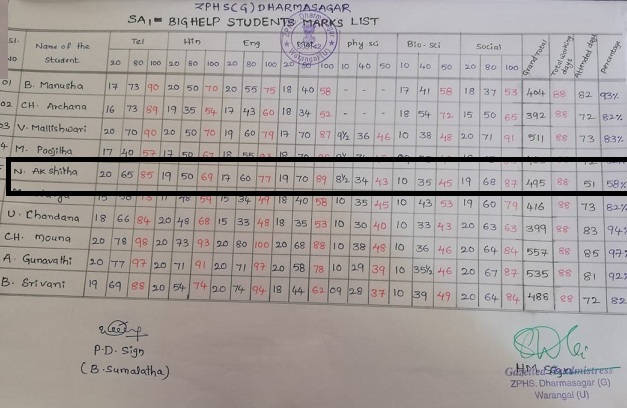 ZPHSC(G) DHARMASAGAR
SA1 = BIGHELP STUDENTS MARKS LIST
Sl. NO Name of the Student Tel Hin Eng phy sci Bio-sci Social Grand Total Total working days Attended days percentage
20 80 100 20 80 100 20 80 100 20 80 100 10 40 50 10 40 50 20 80 100
01 B. Manusha 17 73 90 20 50 70 20 55 75 18 40 58 - - - 17 41 58 18 37 53 404 88 82 93%
02 CH. Archana 16 73 89 19 35 54 17 43 60 18 34 52 - - - 18 54 72 15 50 65 392 88 72 82%
03 V. Malleshwari 20 70 90 20 50 70 19 60 79 17 70 87 9½ 36 46 10 38 48 20 71 91 511 88 73 83%
4 M. Poojitha 17 40 57 17 50 67 18
N. Akshitha 20 65 85 19 50 69 17 60 77 19 70 89 8½ 34 43 10 35 45 19 68 87 495 88 51 58%
59 15 34 49 18 40 58 10 35 45 10 43 53 19 60 79 416 88 73 82%
U. Chandana 18 66 84 20 48 68 15 33 48 18 35 53 10 30 40 10 33 43 20 63 63 399 88 83 94%
CH. Mouna 20 78 98 20 73 93 20 80 100 20 68 88 10 38 48 10 36 46 20 64 84 557 88 85 97%
A. Gunavathi 20 77 97 20 71 91 20 71 97 20 58 78 10 29 39 10 35½ 46 20 67 87 535 88 81 92%
B. Srivani 19 69 88 20 54 74 20 74 94 18 44 62 09 28 37 10 39 49 20 64 84 488 88 72 82
P.D. Sign
(B. Sumalatha)
HM Sign
Gazetted Headmistress
ZPHS. Dharmasagar (G)
Warangal (U)